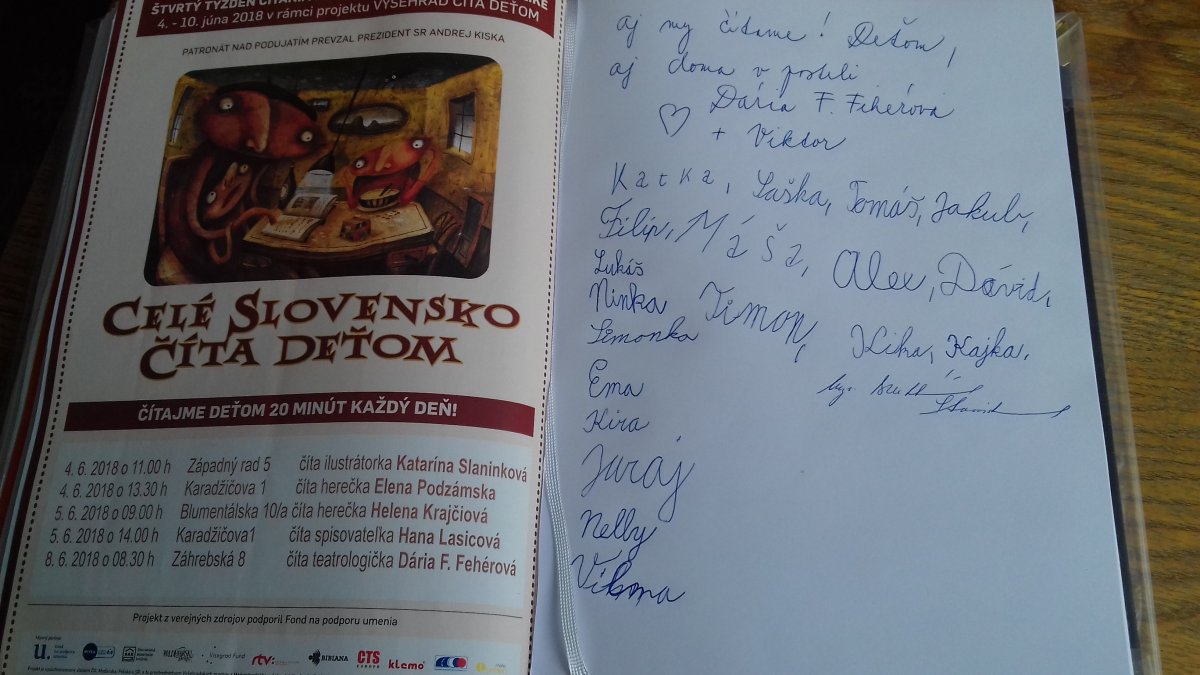 ŠTVRTÝ TÝŽDEŇ ČÍTANIA
4. - 10. júna 2018 v rámci projektu VYŠEHRAD ČÍTA DEŤOM
PATRONÁT NAD PODUJATÍM PREVZAL PREZIDENT SR ANDREJ KISKA
CELÉ SLOVENSKO
ČÍTA DEŤOM
ČÍTAJME DEŤOM 20 MINÚT KAŽDÝ DEŇ!
4. 6. 2018 o 11.00 h Západný rad 5 číta ilustrátorka Katarína Slaninková
4. 6. 2018 o 13.30 h Karadžičova 1 číta herečka Elena Podzámska
5. 6. 2018 o 09.00 h Blumentálska 10/a číta herečka Helena Krajčiová
5. 6. 2018 o 14.00 h Karadžičova1 číta spisovateľka Hana Lasicová
8. 6. 2018 o 08.30 h Záhrebská 8 číta teatrologička Dária F. Fehérová
Projekt z verejných zdrojov podporil Fond na podporu umenia
u. Visegrad Fund rtv: BIBIANA CTS klemo
aj my čítame! Deťom,
aj doma v posteli
Dária F. Fehérová
+ Viktor
Katka, Saška, Tomáš, Jakub,
Filip, Máša, Alex, Dávid,
Lukáš
Ninka Timon, Kika, Kajka.
Simonka
Ema
Kira
Juraj
Nelly